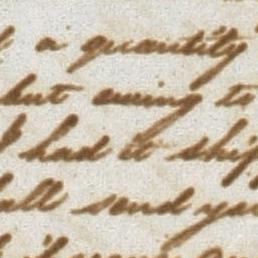 a quantity
but owing to
I had it ship
all send you